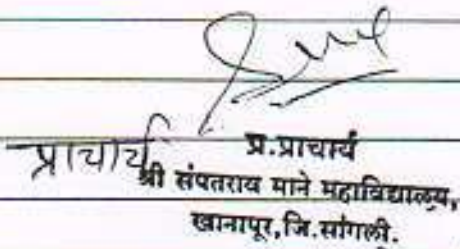 प्राचार्य
प्र.प्राचार्य
श्री संपतराय माने महाविद्यालय,
खानापूर,जि.सांगली.